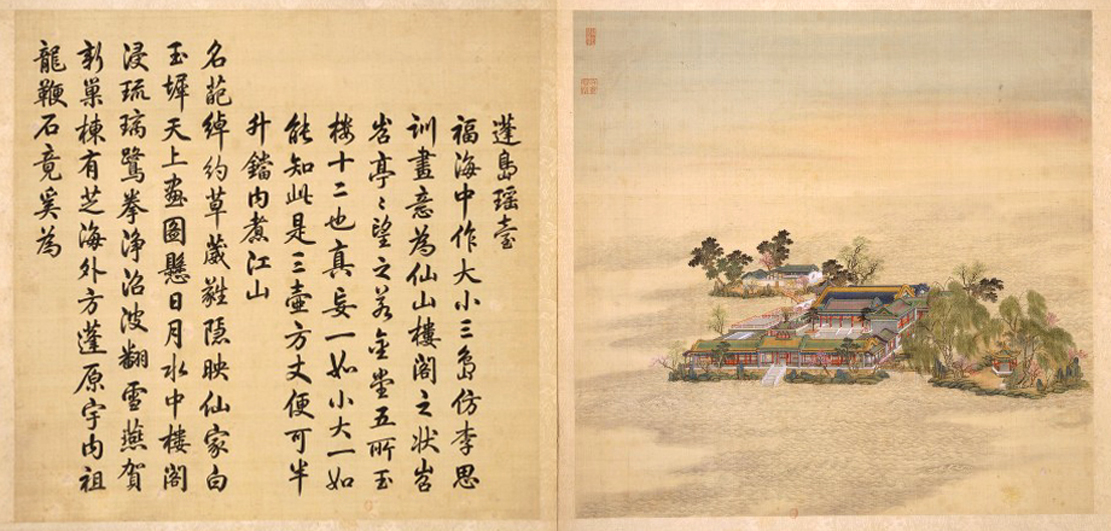 蓬島瑶臺
福海中作大小三島仿李思
訓畫意為仙山樓閣之狀岧
岧亭〻望之若金堂五所玉
樓十二也真妄一如小大一如
能知此是三壺方丈便可半
升鐺內煮江山
名葩綽約草葳蕤隱映仙家白
玉墀天上畫圖懸日月水中樓閣
浸琉璃鷺拳淨沼波翻雪燕賀
新巢棟有芝海外方蓬原宇內祖
龍鞭石竟奚為